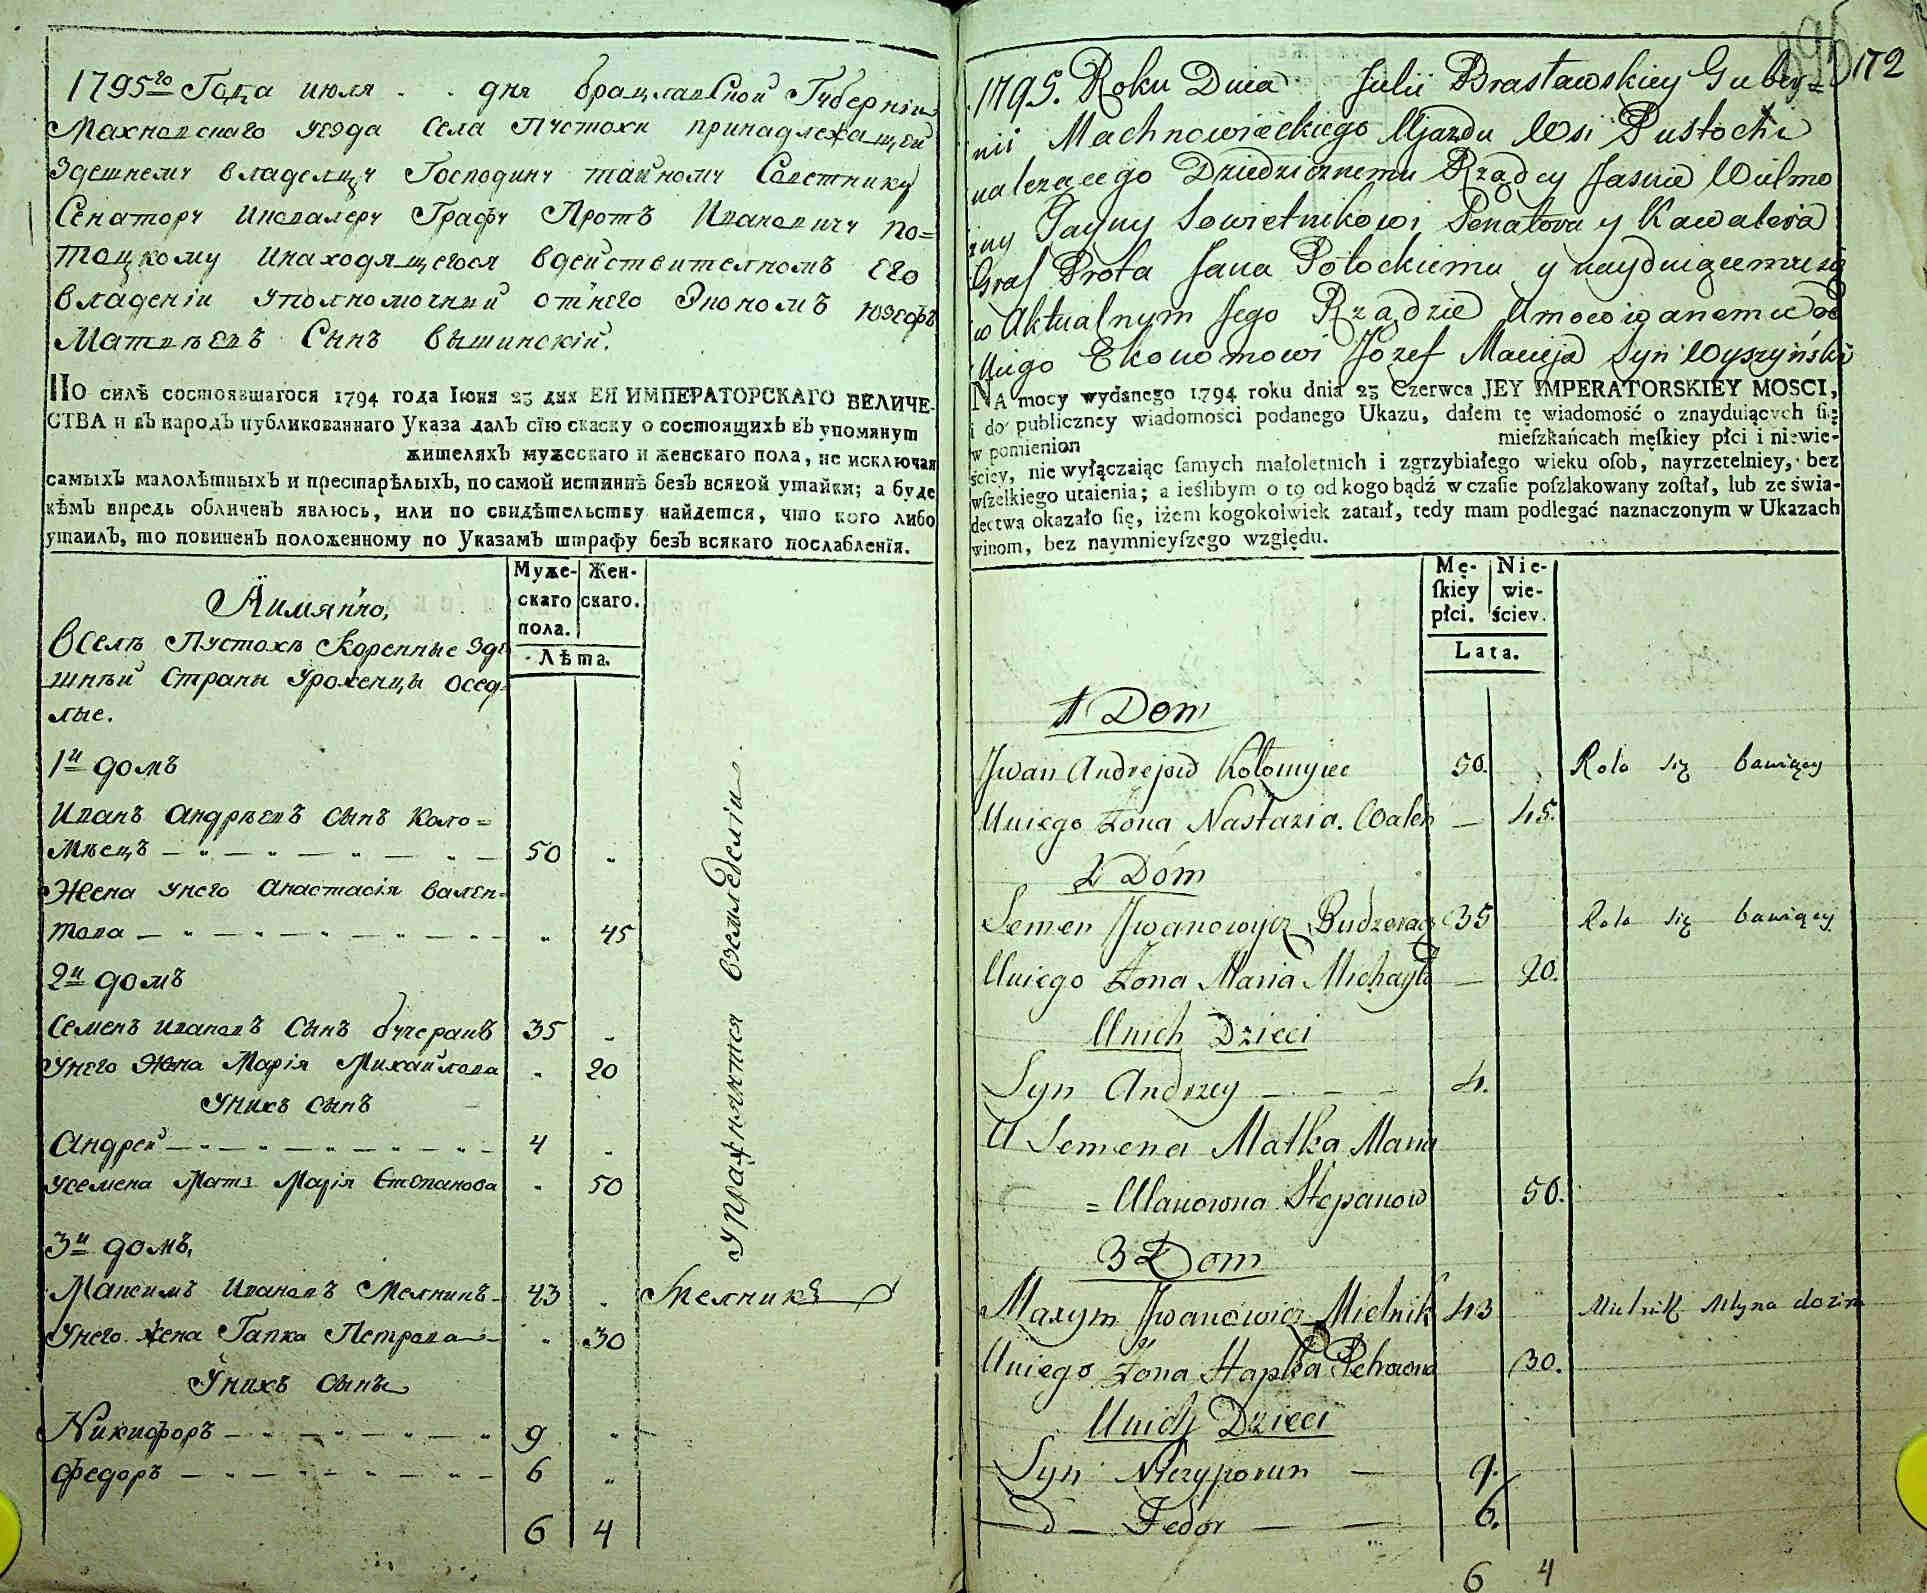 1795го Года июля . . дня брацлавской Губерніи
Махновскаго уезда Села Пустохи принадлежащей
здешнему владелцу Господину тайному Советнику
Сенатору икавалеру Графу Протъ Ивановичу по=
тоцкому инаходящегося вдействителномъ его
владеніи уполномочный отнего Экономъ Юзефъ
Матвѣевъ Сынъ вышинскій.
По силѣ состоявшагося 1794 года Іюня 23 дня ЕЯ ИМПЕРАТОРСКАГО ВЕЛИЧЕ-
СТВА и въ народъ публикованнаго Указа далъ сїю скаску о состоящихъ въ упомянут
жителяхъ мужескаго и женскаго пола, не исключая
самыхъ малолѣтныхъ и престарѣлыхъ, по самой истиннѣ безъ всякой утайки; а буде
кѣмъ впредь обличенъ явлюсь, или по свидѣтельству найдется, что кого либо
утаилъ, то повиненъ положенному по Указамъ штрафу безъ всякаго послабленїя.
Муже- Жен-
скаго скаго.
пола.
Лѣта.
Аимянно,
Вселѣ Пустохѣ Коренные зде
шнѣй Страны Уроженцы осед-
лые.
1й домъ
Иванъ Андрѣевъ сынъ Коло=
мѣецъ 50
Жена унего Анастасія вален-
това 45
2й домъ
Семенъ Ивановъ Сынъ бучеракъ 35
Унего Жена Марія Михайлова 20
Унихъ сынъ
Андрей 4
Усемена Мать Марія Степанова 50
3й домъ,
Максимъ Ивановъ Мелникъ 43 Мелникъ
Унего жена Гапка Петрова 30
Унихъ сыны
Никифоръ 9
Федоръ 6
6 4
Упражняются вземледеліи.
172
1795. Roku Dnia Julii Brasławskiey Guber=
nii Machnowieckiego Ujazdu Wsi Pustochi
należącego Dziedzicznemu Rządcy Jasnie Wielmo
żny Tayny Sowietnikowi Senatora y Kawalera
Graf Prota Jana Potockiemu y naydującemu się
w Aktualnym Jego Rządzie Umocowanemu od
Niego Ekonomowi Jozef Macieja Syn Wyszyński
NA mocy wydanego 1794 roku dnia 23 Czerwca JEY IMPERATORSKIEY MOSCI,
i do publiczney wiadomości podanego Ukazu, dałem tę wiadomość o znayduiących ſię
w pomienion mieſzkańcach męſkiey płci i niewie-
ściey, nie wyłączaiąc ſamych małoletnich i zgrzybiałego wieku oſob, nayrzetelniey, bez
wſzelkiego utaienia; a ieślibym o to od kogo bądź w czaſie poſzlakowany zoſtał, lub ze świa-
dectwa okazało ſię, iżem kogokolwiek zataił, tedy mam podlegać naznaczonym w Ukazach
winom, bez naymnieyſzego względu.
Mę- Nie-
ſkiey wie-
płci. ściey.
Lata.
1 Dom
Jwan Andrejow Kołomyiec 50. Rolo się bawiący
Uniego Żona Nastazia Walen — 45.
2 Dom
Semen Jwanowycz Budzerak 35 Rolo się bawiący
Uniego Żona Maria Michayło — 20.
Unich Dzieci
Syn Andrzey — — — 4.
U Semena Matka Maria
= Ulanowna Stepanow 50.
3 Dom
Maxym Jwanowicz Mielnik 43 Mielnik Młyna dozira
Uniego Żona Hapka Petrowna 30.
Unich Dzieci
Syn Niczyporum — 9.
— D — Fedor — — 6.
6 4